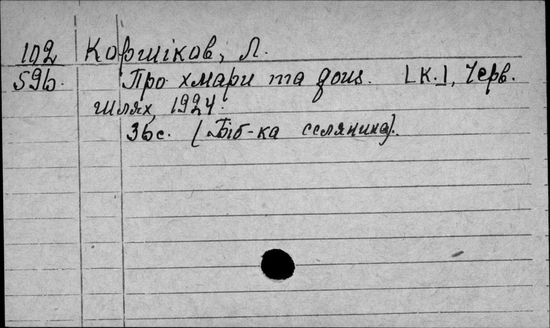 102 Коршіков, Л.
59б. Про хмари та дощ. [К.], Черв.
шлях, 1924.
36с. (Біб-ка селянина).